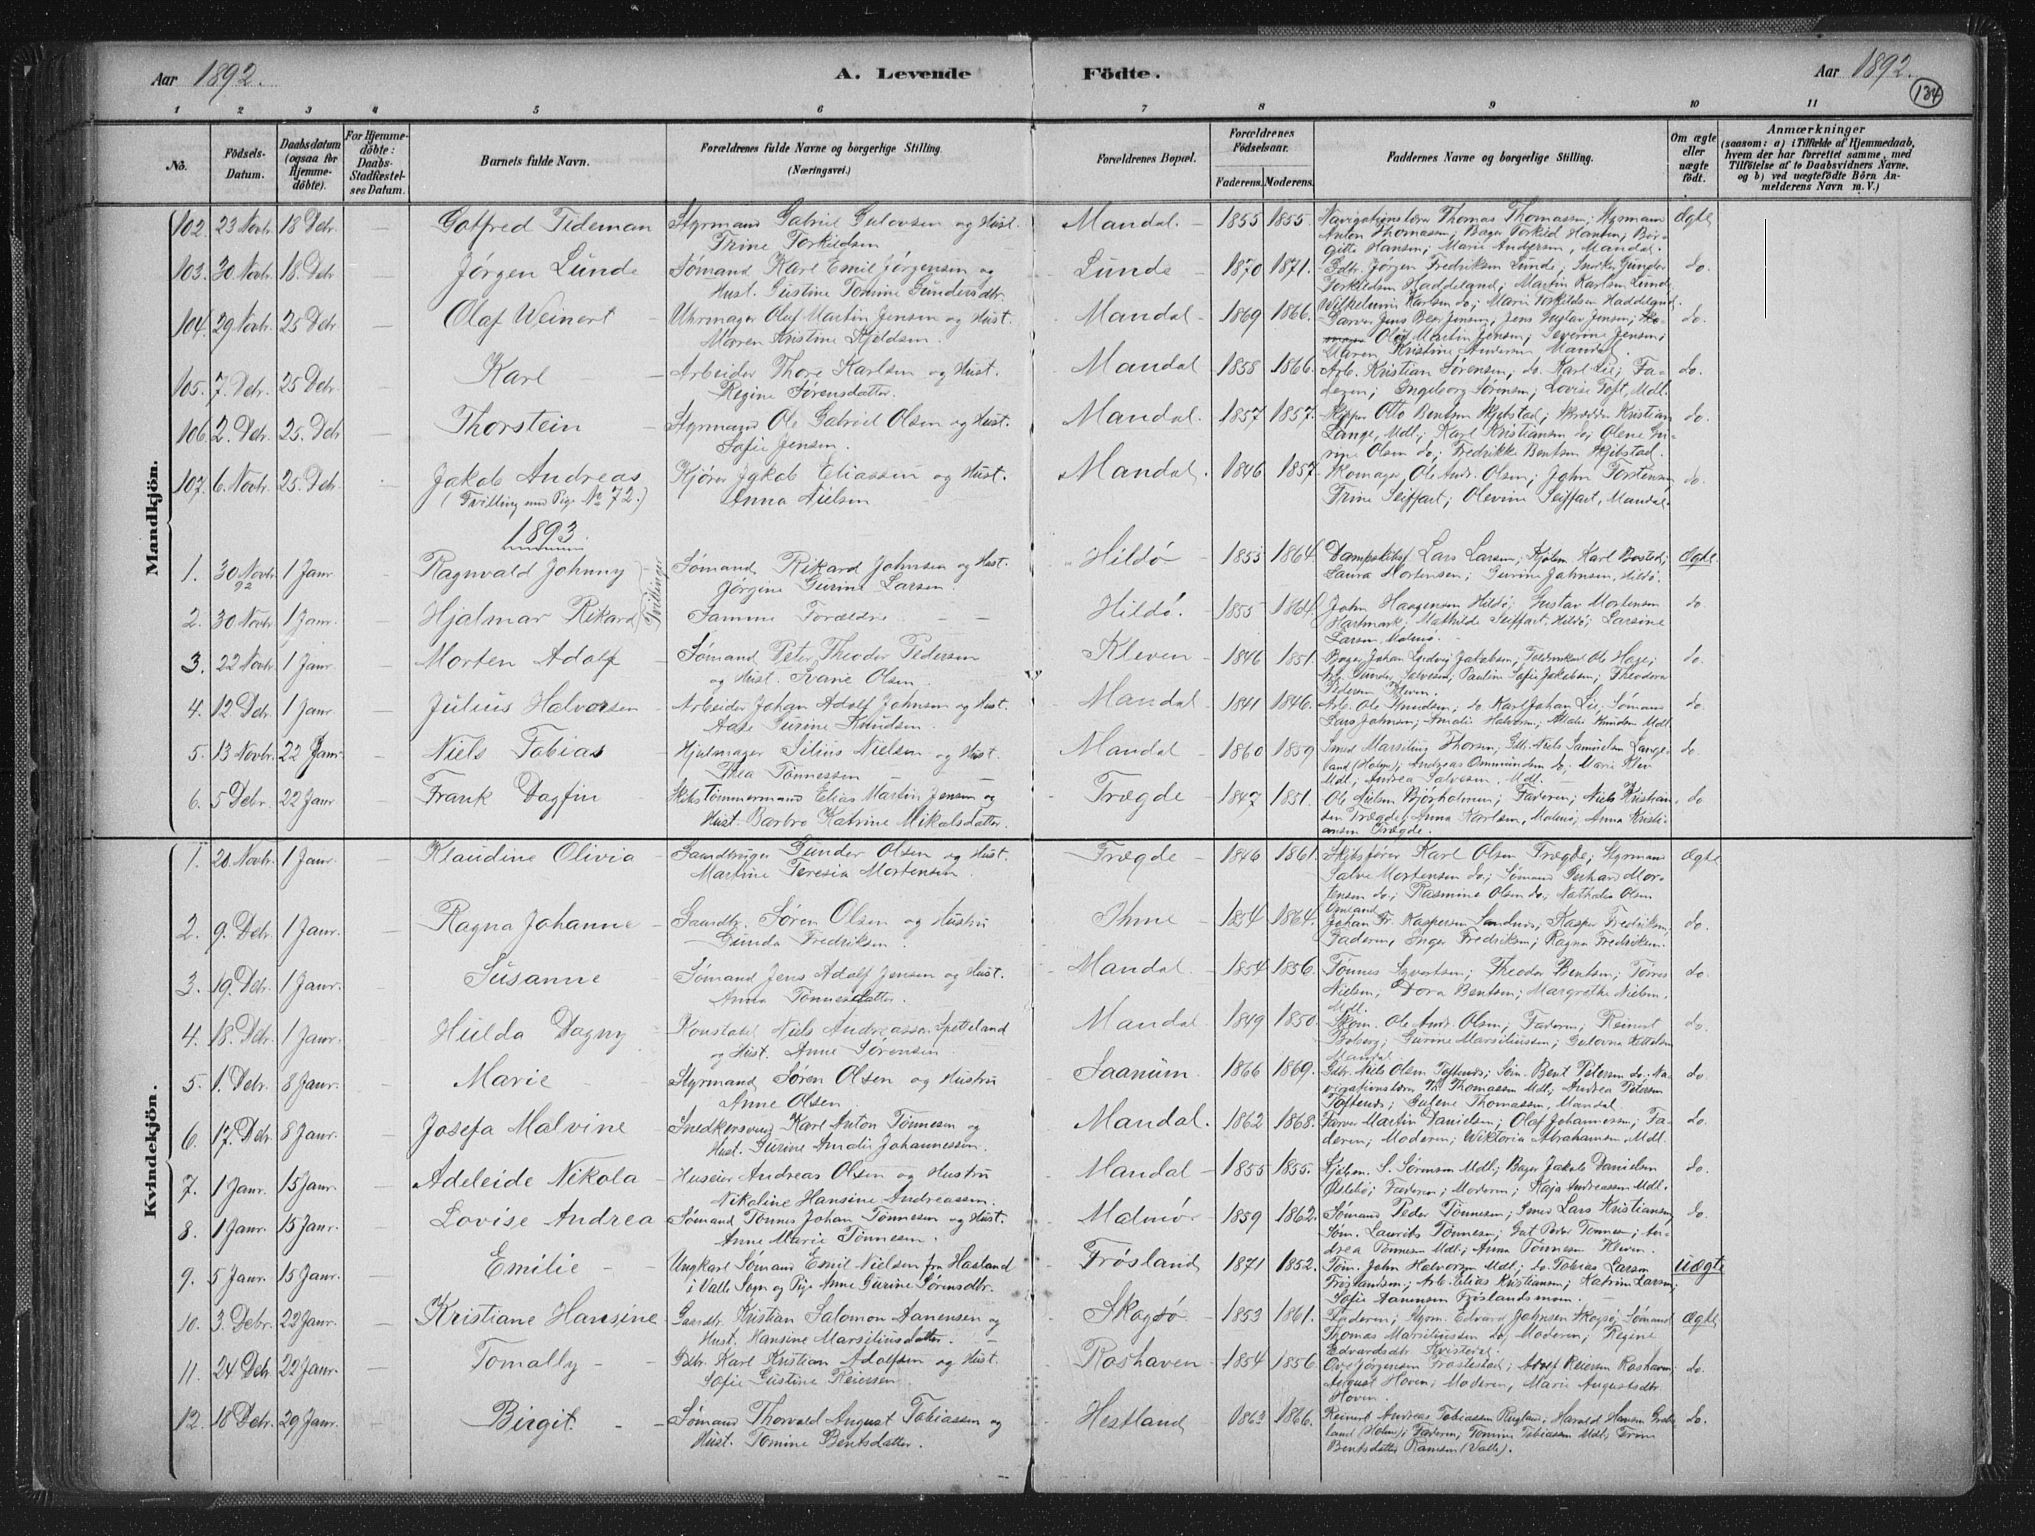 Aar 1892. A. Levende Födte. Aar 1892.
134
1 2 3 4 5 6 7 8 9 10 11
No. Födsels-Datum. Daabsdatum (ogsaa for Hjemmedöbte). For Hjemmedöbte: Daabs-Stadfæstelses Datum. Barnets fulde Navn. Forældrenes fulde Navne og borgerlige Stilling. (Næringsvei.) Forældrenes Bopæl. Forældrenes Födselsaar. Faderens. Moderens. Faddernes Navne og borgerlige Stilling. Om ægte eller uægte födt. Anmærkninger (saasom: a) i Tilfælde af Hjemmedaab, hvem der har forrettet samme, med Tilföielse af to Daabsvidners Navne, og b) ved uægtefödte Börn Anmelderens Navn m. V.)
Mandkjön.
102. 23 Novbr. 18 Debr. — Gotfred Tideman Styrmand Gabriel Gulovsen og Hust. Mandal. 1855 1855. Navigationslærer Thomas Thomassen; Styrmann Ægte
Trine Torkildsen Anton Thomassen; Bager Torkild Hansen; Bör-
gitte Hansen; Marie Andersen, Mandal.
103. 30 Novbr. 18 Debr — Jörgen Lunde Sömand Karl Emil Jörgensen og Lunde 1870 1871. Gdbr. Jörgen Fredriksen Lunde; Snekker Gunder do.
Hust. Gustine Tomine Gundersdtr. Torkildsen Haddeland; Martin Karlsen Lunde
Wilhelmine Karlsen do; Marie Torkildsen Haddeland.
104. 29 Novbr. 25 Debr — Olaf Weinert Uhrmager Oluf Martin Jensen og Hust. Mandal 1869 1866. Garver Jens Jensen; Jens Gustav Jensen; do.
Maren Kristine Kjeldsen. Oluf Martin Jensen; Severine Jensen;
Maren Kristine Andersen Mandal.
105. 7. Debr. 25 Debr — Karl Arbeider Thore Karlsen og Hust. Mandal 1858 1866. Arb. Kristian Sörensen; do. Karl Lie; Fa- do.
Regine Sörensdatter. deren; Ingeborg Sörensen; Lovise Toft, Mdl.
106. 2. Debr. 25. Debr — Thorstein Styrmand Ole Gabriel Olsen og Hust. Mandal. 1857 1857. Skipper Otto Bentsen Skjebstad; Skrædder Kristian do.
Sofie Jensen. Lange, Mdl; Karl Kristiansen do; Olene Gu-
rine Olsen do; Fredrikke Bentsen Skjebstad.
107. 6. Novbr. 25. Debr Jakob Andreas Kjörer Jakob Eliassen og Hust. Mandal. 1846 1857. Skomager Ole Andr. Olsen; John Torstensen do.
(Tvilling med Pige No 72.) Anna Nielsen Trine Seiffart; Olevine Seiffart, Mandal.
1893.
1. 30 Novbr 92 1 Janr — Ragnvald Johnny Tvillinger Sömand Rikard Johnsen og Hust. Hildö 1855 1864. Dampskibsf. Lars Larsen; Kjöbm. Karl Bosted; Ægte
Jörgine Gurine Larsen. Laura Mortensen; Gurine Johnsen, Hildö.
2. 30 Novbr 1 Janr. — Hjalmar Rikard Samme Forældre — — Hildö. 1855 1864. John Haagensen Hildö; Gustav Mortensen do.
Hartmark; Mathilde Seiffart, Hildö; Larsine
Larsen, Malmö.
3. 22 Novbr 1 Janr. — Morten Adolf Sömand Peter Theodor Pedersen Kleven 1846 1851. Bager Johan Ludvig Jakobsen; Ole Hoge; do.
og Hust. Ivane Olsen. Arb. Gunder Salvesen; Pauline Sofie Jakobsen; Theodora
Pedersen Kleven.
4. 12 Debr 1 Janr — Julius Halvorsen Arbeider Johan Adolf Johnsen og Hust. Mandal 1841 1846. Arb. Ole Knudsen; do Karl Johan Lie; Sömand do.
Aase Gurine Knudsen Lars Johnsen; Amalie Halvorsen; Knudsen Mdl.
5. 13 Novbr. 22 Janr — Niels Tobias Hjulmager Silius Nielsen og Hust. Mandal 1860 1859 Smed Marsilius Thorsen; Gdbr. Niels Samuelsen Lange- do
Thea Tönnessen land (Holm); Andreas Osmundsen do; Marie Klev
Mdl; Andrea Salvesen, Mdl.
6. 5 Debr. 22 Janr — Frank Dagfin Skibstömmermand Elias Martin Jensen og Trægde 1847 1851. Ole Nielsen Bjørholmen; Faderen; Niels Kristian- do
Hust. Barbro Katrine Mikalsdatter. sen Trægde; Anna Karlsen, Malmö; Anna Kristi-
ansen Trægde.
Kvindekjön.
1. 20 Novbr. 1 Janr. — Klaudine Olivia Gaardbruger Gunder Olsen og Hust. Trægde 1846 1861. Skibsförer Karl Olsen Trægde; Styrmand Ægte
Martine Teresia Mortensen. Salve Mortensen do; Sömand Gerhard Mor-
tensen do; Rasmine Olsen do; Nathalia Olsen
2. 9. Debr. 1 Janr. — Ragna Johanne Gaardbr. Sören Olsen og Hustru Ihme 1854 1864. Johan Fr. Kaspersen Sandnes; Kasper Fredriksen; do.
Gunda Fredriksen. Faderen, Inger Fredriksen; Ragna Fredriksen.
3. 19. Debr. 1 Janr. — Susanne Sömand Jens Adolf Jensen og Hust. Mandal 1854 1856. Tönnes Syvertsen; Theodor Bentsen; Torres do.
Anna Tönnesdatter. Nielsen; Dora Bentsen; Margrethe Nielsen.
Mdl.
4. 18. Debr. 1 Janr. — Hulda Dagny Konstabel Niels Andreassen Spetteland Mandal 1849 1850. Skom. Ole Andr. Olsen; Faderen; Reinert do.
og Hust. Anne Sörensen. Boberg; Gurine Marsiliussen; Gulovna Kittelsen
Mandal.
5. 1. Debr. 8 Janr. — Marie Styrmand Sören Olsen og Hustru Saanum 1866 1869. Gdbr. Niels Olsen Toftenes; Söm. Bent Petersen do. Na- do.
Anne Olsen vigationslærer Th. Thomassen Mdl; Andrea Petersen
Toftenes; Gulene Thomassen, Mandal
6. 17. Debr. 8 Janr. — Josefa Malvine Snedkersvend Karl Anton Tönnesen og Mandal. 1862 1868. Farver Martin Danielsen; Olaf Johannessen; Fa- do.
Hust. Gurine Amalie Johannessen. deren; Moderen; Wiktoria Abrahamsen, Mdl.
7. 1 Janr. 15 Janr. — Adeleide Nikola Huseier Andreas Olsen og Hustru Mandal 1855 1855. Kjöbm. S. Sörensen Mdl; Bager Jakob Danielsen do.
Nikoline Hansine Andreassen. Öslebö; Faderen; Moderen; Kaja Andreassen Mdl.
8. 1 Janr. 15 Janr. — Lovise Andrea Sömand Tönnes Johan Tönnesen og Hust. Malmö 1859 1862. Sömand Peder Tönnesen; Smed Lars Kristiansen, do.
Anne Marie Tönnesen. Söm. Laurits Tönnesen; Gut Peder Tönnesen; An-
drea Tönnesen Mdl; Anna Tönnesen Kleven.
9. 5 Janr. 15 Janr. — Emilie Ungkarl Sömand Emil Nielsen fra Hasland Fröisland 1871 1852. Töm. John Halvorsen Mdl; do. Tobias Larsen uægte
i Valle Sogn og Pige Anne Gurine Sörensdtr. Fröislandsm.; Arb. Elias Kristiansen; Katrine Larsen;
Sofie Aanensen Fröislandsmoen.
10. 3. Debr. 22 Janr. — Kristiane Hansine Gaardbr. Kristian Salomon Aanensen og Skogsö 1853 1861. Faderen; Styrm. Edvard Johnsen Skogsö; Sömand Ægte
Hust. Hansine Marsiliusdatter. Thomas Marsiliussen do; Moderen; Regine
Edvardsdtr
11. 24 Debr 22 Janr. — Tomally Gdbr. Karl Kristian Adolfsen og Hust. Roshaven 1854 1856. Ove Jörgensen Frostestad; Adolf Reiersen Roshaven; do.
Sofie Gustine Reiersen. August Hoven; Moderen, Marie Augustsdtr.
Hoven.
12. 18 Debr. 29 Janr. — Birgit Sömand Thorvald August Tobiassen og Hestland 1863 1866. Reinert Andreas Tobiassen; Harald Hansen do.
Hust. Tomine Bentsdatter. land (Holm); Faderen; Tomine Tobiassen Mdl; Trine
Bentsdatter (Valle).